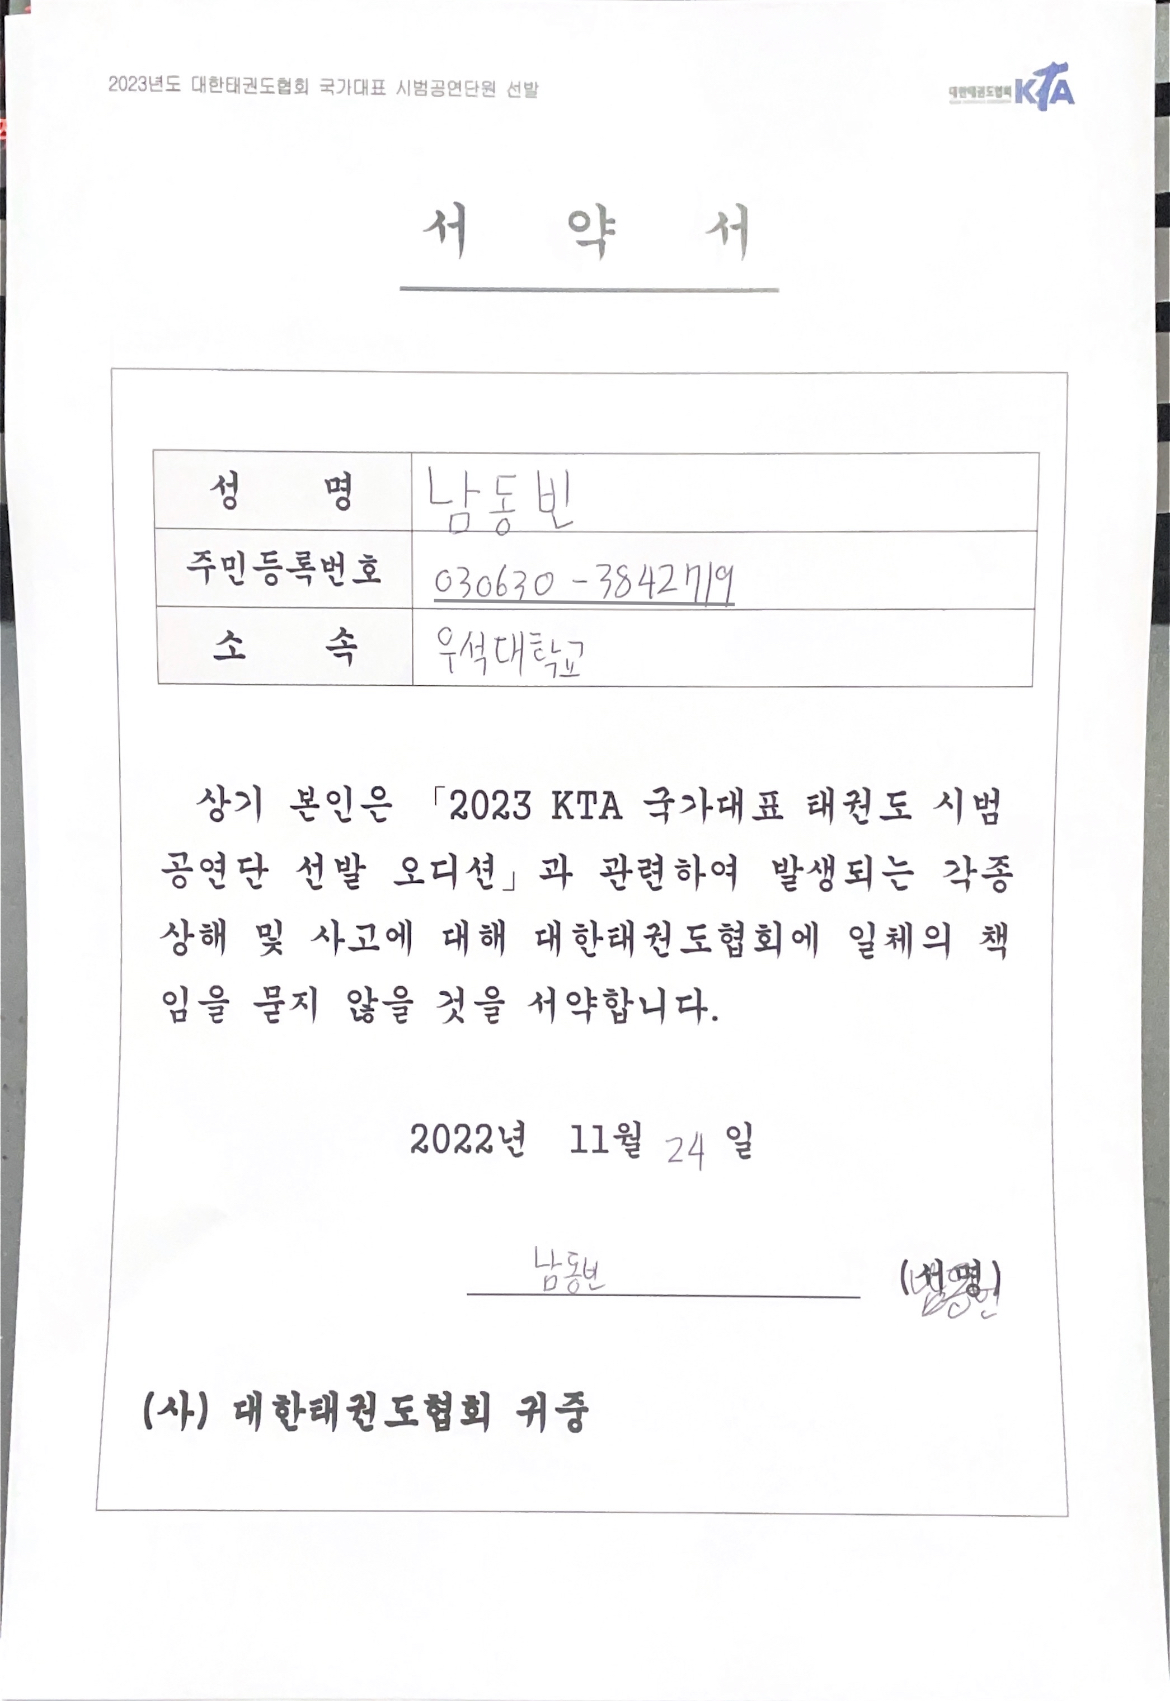 2023년도 대한태권도협회 국가대표 시범공연단원 선발
대한태권도협회 KTA
서 약 서
성 명 남동빈
주민등록번호 030630-3842719
소 속 우석대학교
상기 본인은 「2023 KTA 국가대표 태권도 시범
공연단 선발 오디션」과 관련하여 발생되는 각종
상해 및 사고에 대해 대한태권도협회에 일체의 책
임을 묻지 않을 것을 서약합니다.
2022년 11월 24일
남동빈 (서명)
(사) 대한태권도협회 귀중